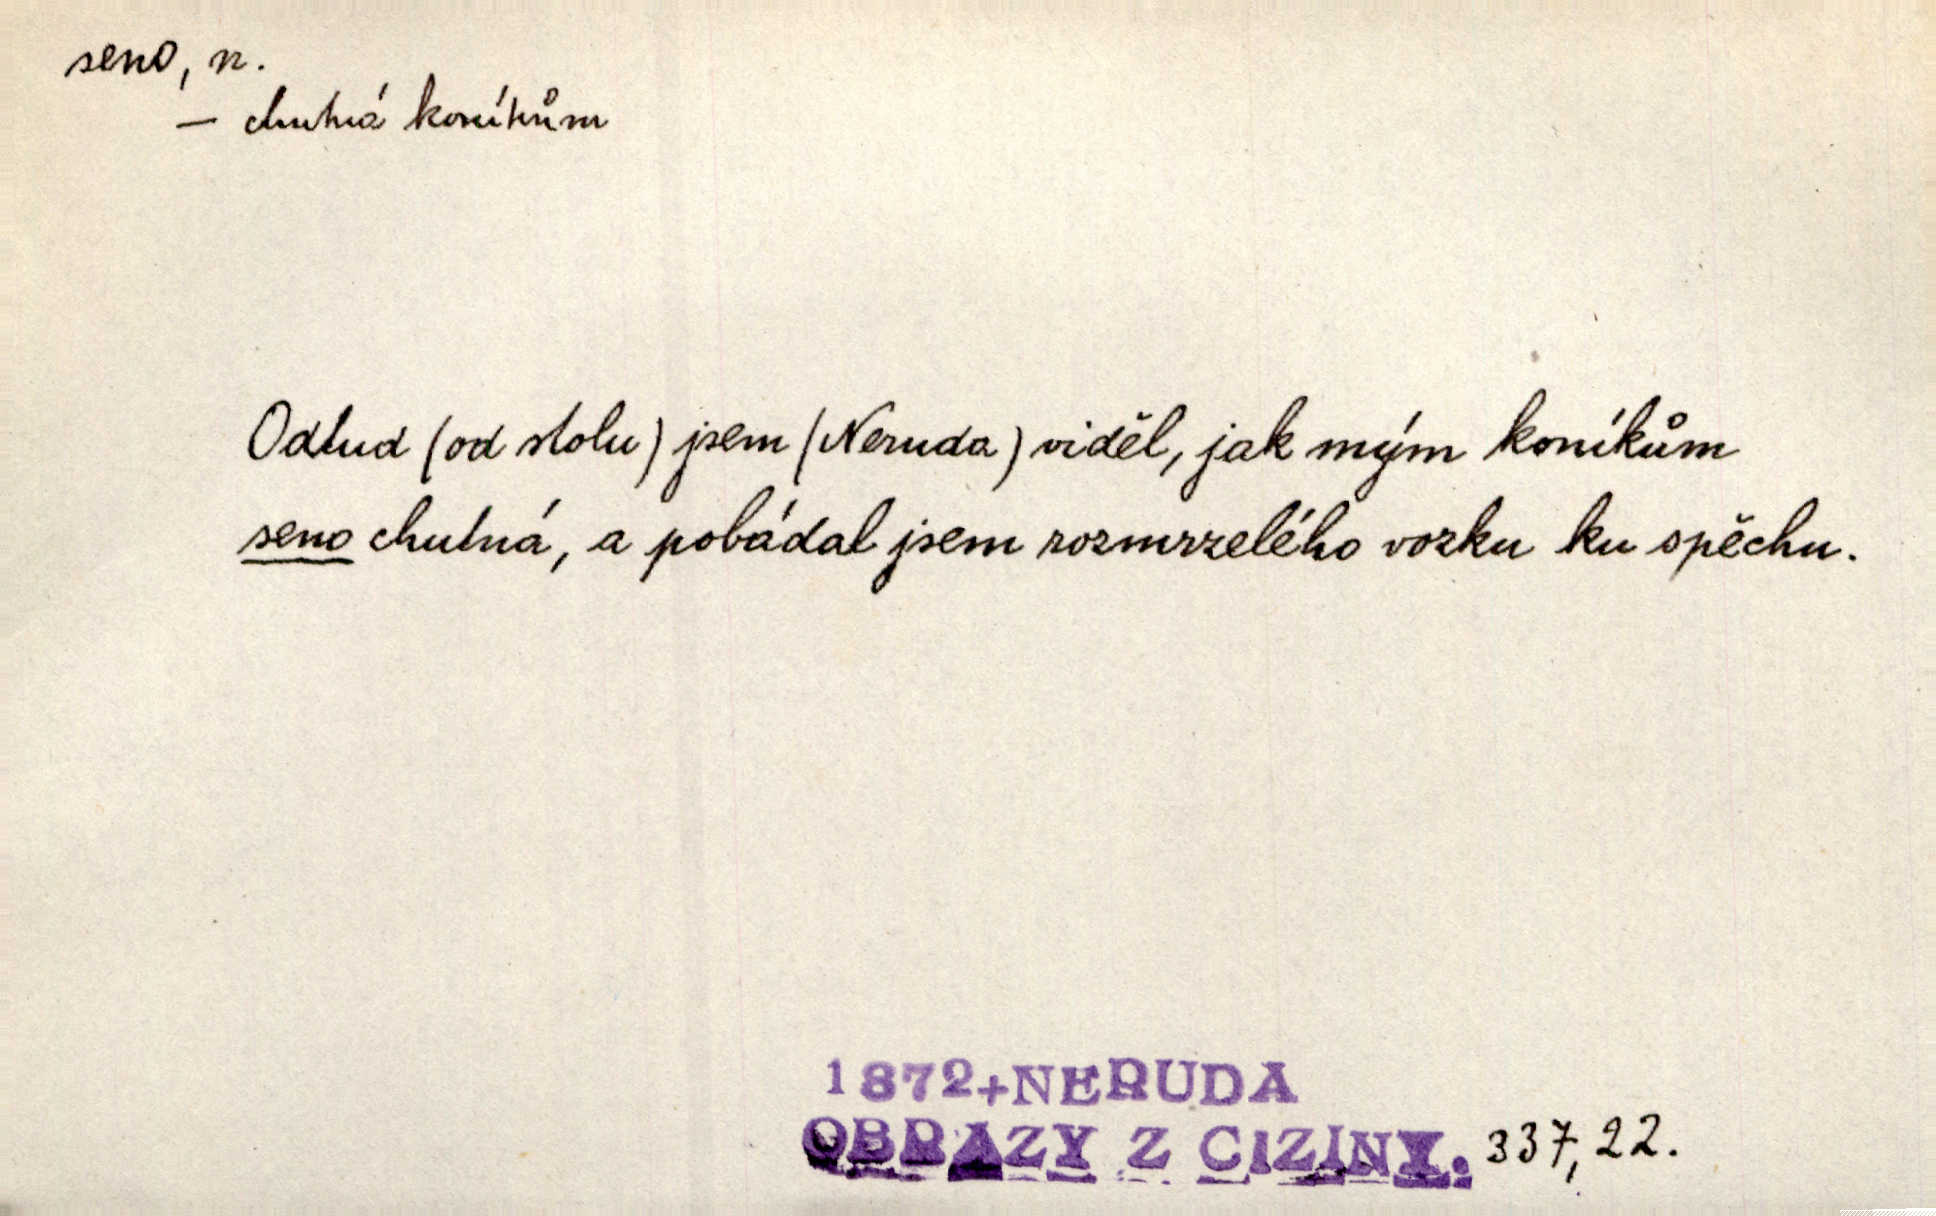 seno, n.
— chutná koníkům
Odtud (od stolu) jsem (Neruda) viděl, jak mým koníkům
seno chutná, a pobádal jsem rozmrzelého vozku ku spěchu.
1872+NERUDA
OBRAZY Z CIZINY. 337, 22.